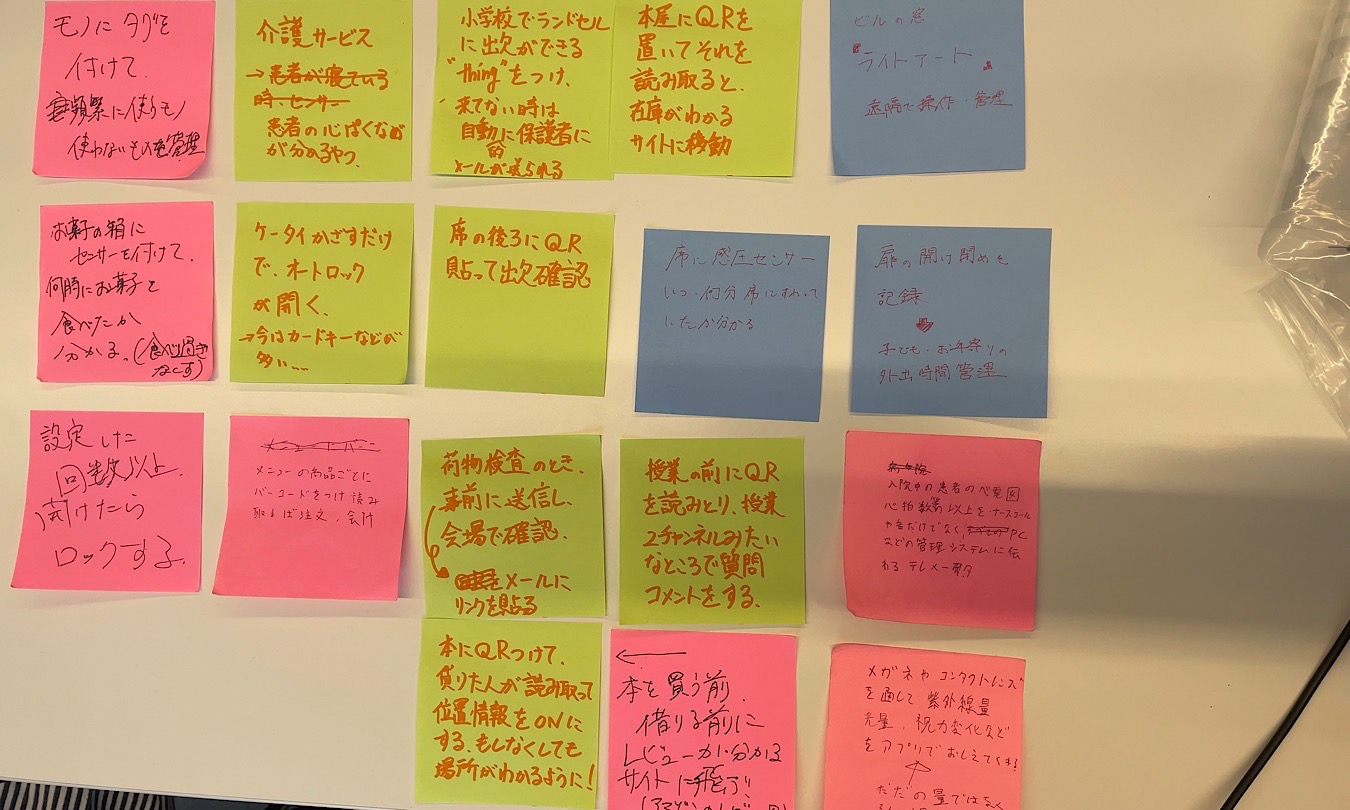 モノにタグを
付けて、
頻繁に使うモノ
使わないものを管理
介護サービス
→患者が寝ている
時、センサー
患者の心ぱくなど
が分かるやつ。
小学校でランドセル
に出欠ができる
"thing"をつけ、
来てない時は
自動的に保護者に
メールが送られる
本屋にQRを
置いてそれを
読み取ると、
在庫がわかる
サイトに移動
ビルの窓
ライトアート
遠隔で操作・管理
お菓子の箱に
センサーを付けて、
何時にお菓子を
食べたか
分かる。(食べ過ぎ
なくす)
ケータイかざすだけ
で、オートロック
が開く、
→今はカードキーなどが
多い...
席の後ろにQR
貼って出欠確認
席に感圧センサー
いつ・何分席にすわって
いたか分かる
扉の開け閉めを
記録
子ども・お年寄りの
外出時間管理
設定した
回数以上
開けたら
ロックする。
メニューの商品ごとに
バーコードをつけ読み
取れば注文、会計
荷物検査のとき、
事前に送信し、
会場で確認、
をメールに
リンクを貼る
授業の前にQR
を読みとり、授業
2チャンネルみたい
なところで質問
コメントをする、
入院中の患者の心電図
心拍数異以上を・ナースコール
や音だけでなく、PC
などの管理システムに伝
わる テレメータ
本にQRつけて、
貸りた人が読み取って
位置情報をONに
する。もしなくしても
場所がわかるように!
←
本を買う前、
借りる前に
レビューが分かる
サイトに飛ぶ!!
メガネやコンタクトレンズ
を通して紫外線量
光量、視力変化など
をアプリでおしえてくれる!
ただの量ではなく